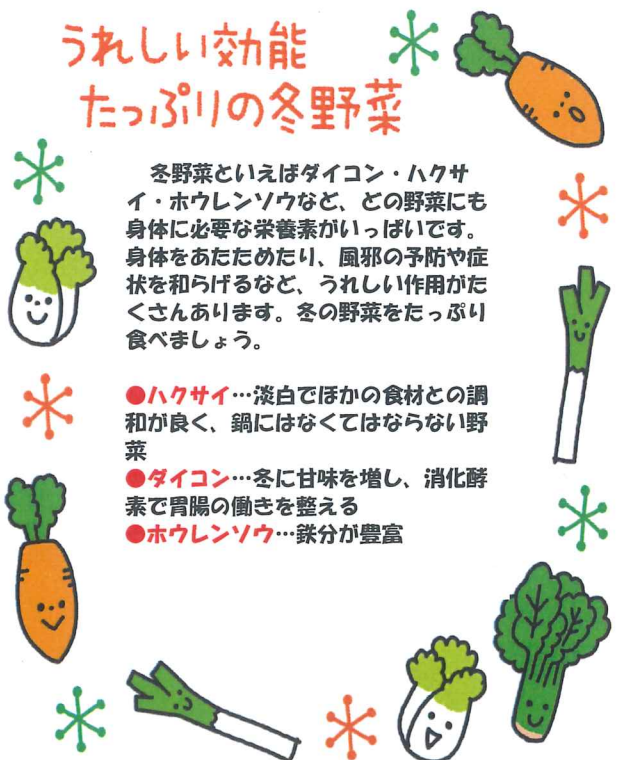 うれしい効能
たっぷりの冬野菜
冬野菜といえばダイコン・ハクサ
イ・ホウレンソウなど、どの野菜にも
身体に必要な栄養素がいっぱいです。
身体をあたためたり、風邪の予防や症
状を和らげるなど、うれしい作用がた
くさんあります。冬の野菜をたっぷり
食べましょう。
●ハクサイ…淡白でほかの食材との調
和が良く、鍋にはなくてはならない野
菜
●ダイコン…冬に甘味を増し、消化酵
素で胃腸の働きを整える
●ホウレンソウ…鉄分が豊富